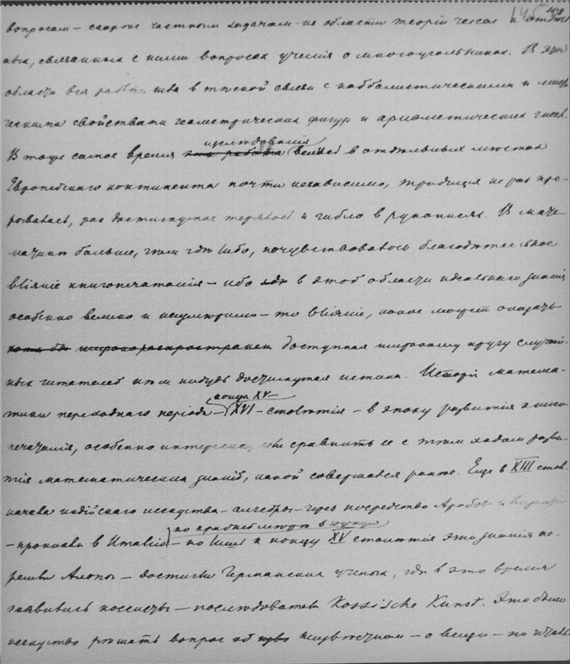 вопросам – скорее частным задачам – из области теорiи чиселъ и
ных, связанных с ними вопросах ученiя о многоугольниках. В этой
области вся работа шла в тесной связи с каббалистическими и мисти
ческими свойствами геометрических фигур и арифметических чисел.
исследования
В то же самое время эта работа велись в отдельных местах
Европейскаго континента почти независимо, традицiя не раз пре-
рывалась, раз достигнутое терялось и гибло в рукописях. В мате-
матике больше, чем где либо, почувствовалось благодетельное
влiянiе книгопечатанiя – ибо в этой области идеальнаго знанiя
особенно велико и неумолимо – то влiянiе, какое может оказать
широкораспространен доступная широкому кругу случай-
ных читателей кем нибудь достигнутая истина. Исторiя матема-
конца XV –
тики переходнаго перiода – XVI – столетiя – в эпоху развитiя книго
печатанiя, особенно интересна, если сравнить ее с тем ходом разви-
тiя математических знанiй, какой совершался ранее. Еще в XIII стол.
начала индiйскаго искусства – алгебры – через посредство Арабов
по крайней мере в конце
– проникли в Италiю – но лишь к концу XV столетiя эти знанiя пе-
решли Альпы – достигли Германских ученых, где в это время
появились коссисты – последователи Kossische Kunst. Это было
искусство решать вопрос об неизвестном – о вещи – по итал.